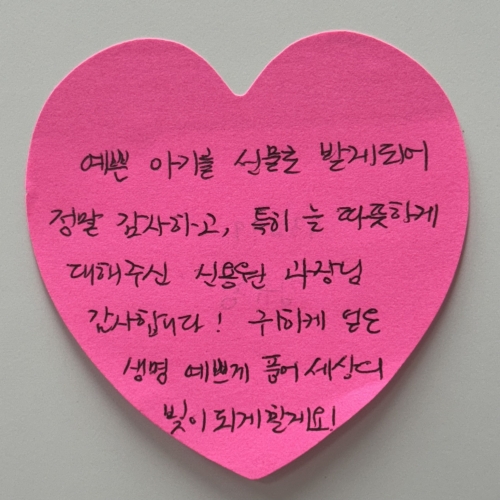 예쁜 아기를 선물로 받게되어
정말 감사하고, 특히 늘 따뜻하게
대해주신 신용원 과장님
감사합니다! 귀하게 얻은
생명 예쁘게 품어 세상의
빛이 되게할게요!